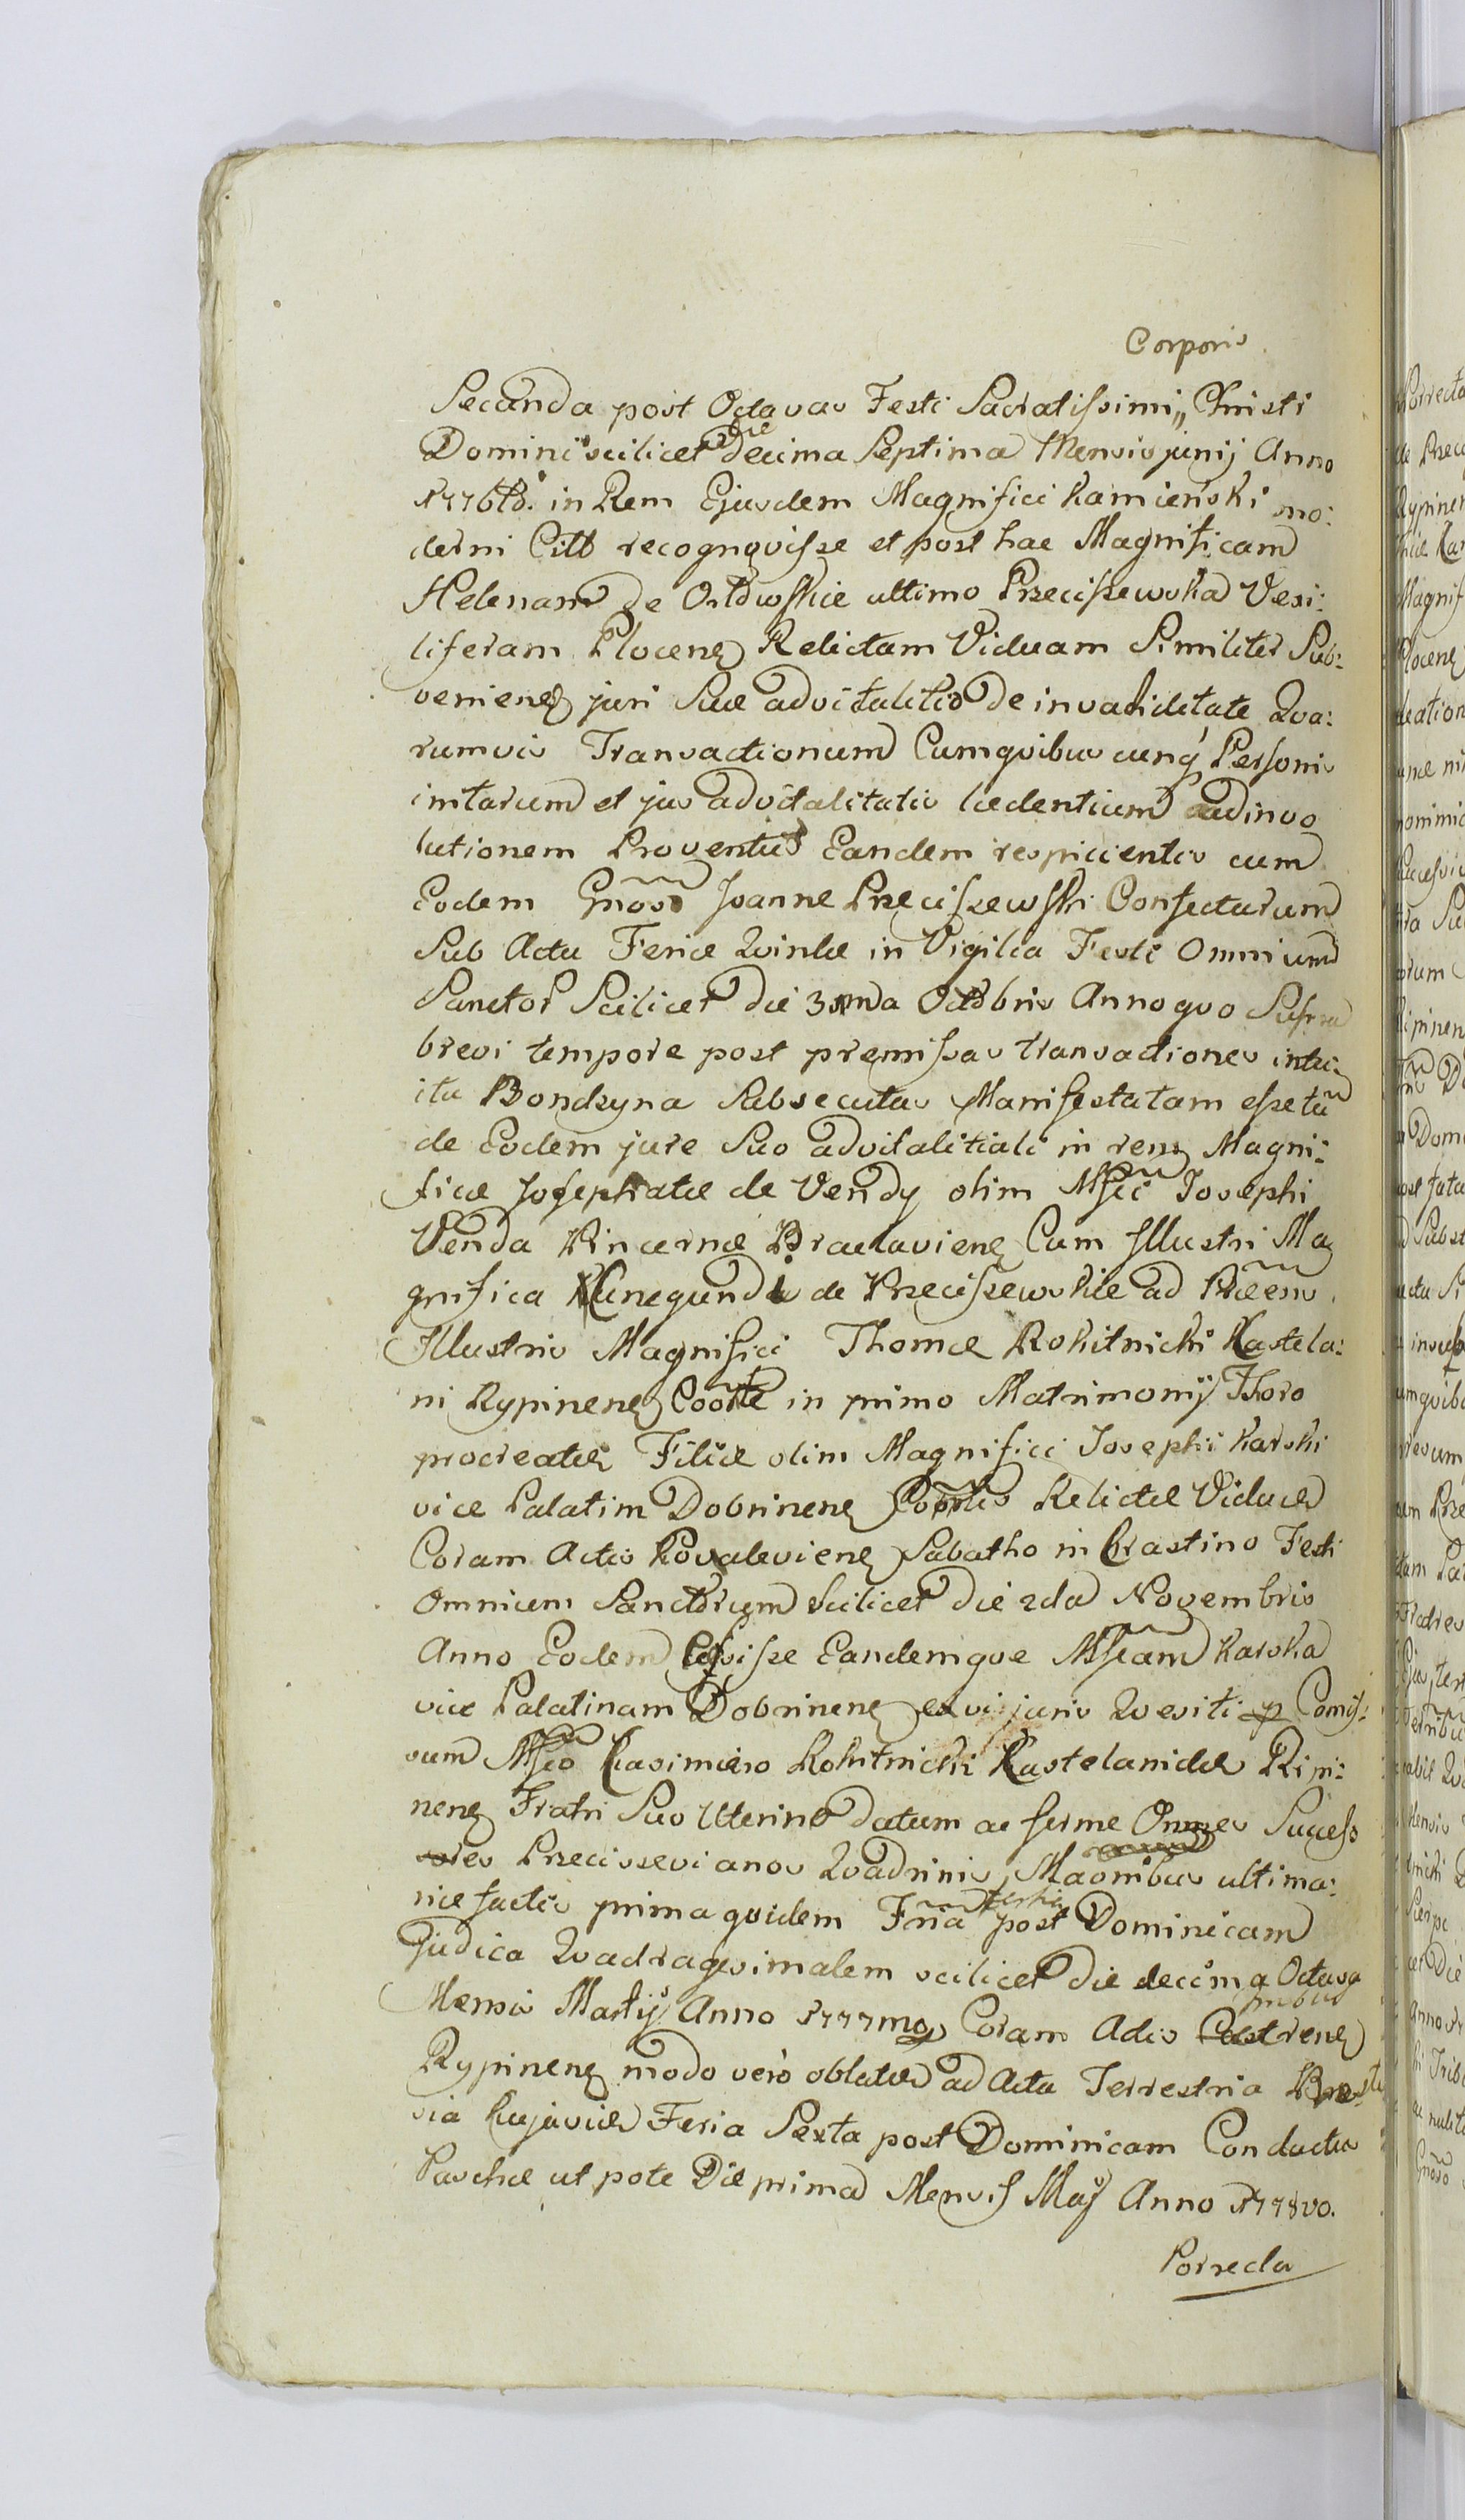 Corporis
Secunda post Octavas Festi Sacratissimi,, Christi
Domini scilicet die decima Septima Mensis junij Anno
1776to. in Rem Ejusdem Magnifici Kamieński mo:
derni Citt recognovisse et post hac Magnificam
Helenam de Orłowskie ultimo Przeciszewska Vexi:
liferam Plocens Relictam Viduam Similiter Sub:
veniens juri Suæ advitalitio de invaliditate Qva:
rumvis Transactionum Cumqvibus cunq Personis
initarum et jus advitalitatis lædentium ad invo
lutionem Proventus Eandem respicientis cum
Eodem Gnoso Joanne Przeciszewski Confecturum
Sub Actu Feriæ Qvintæ in Vigilia Festi Omnium
Sanctor Scilicet die 31ma Octobris Anno qvo Supra
brevi tempore post premissas transactiones intu:
itu Bondzyna Subsecutas Manifestatam esse tum
de Eodem jure Suo advitalitiali in rem Magni:
ficæ Josephatæ de Vendy olim Mfci Josephi
Venda Pincernæ Braclaviens Cum Illustri Ma
gnifica Kunegundi de Przeciszewskie ad Præens
Illustris Magnifici Thomæ Rokitnicki Kastela:
ni Rypinens Coorte in primo Matrimonij Thoro
procreatæ Filiæ olim Magnifici Josephi Karski
vice Palatini Dobrinens Coortis Relictæ Viduæ
Coram Actis Kovaleviens Sabatho in Crastino Festi
Omnium Sanctorum Scilicet die 2da Novembris
Anno Eodem Cessisse Eandemque Mfcam Karska
vice Palatinam Dobrinens ex vi juris Qvesiti p Comis:
sum Mfco Casimiro Rokitnicki Kastelanidæ Ripi:
nens Fratri Suo Uterino datum ac ferme Omnes Success
ores Przecissevianos Qvadrinis, Maonibus ultima:
rie factis prima qvidem Fria tertia post Dominicam
Judica Qvadragesimalem scilicet die decima Octava
Mensis Martij Anno 1777mo Coram Actis Castrens
Rypinens modo verò oblatæ ad Acta Terrestria Breste
sia Cujaviæ Feria Sexta post Dominicam Conductus
Paschæ ut pote Die prima Mensis Maj Anno 1778vo.
Porrecta